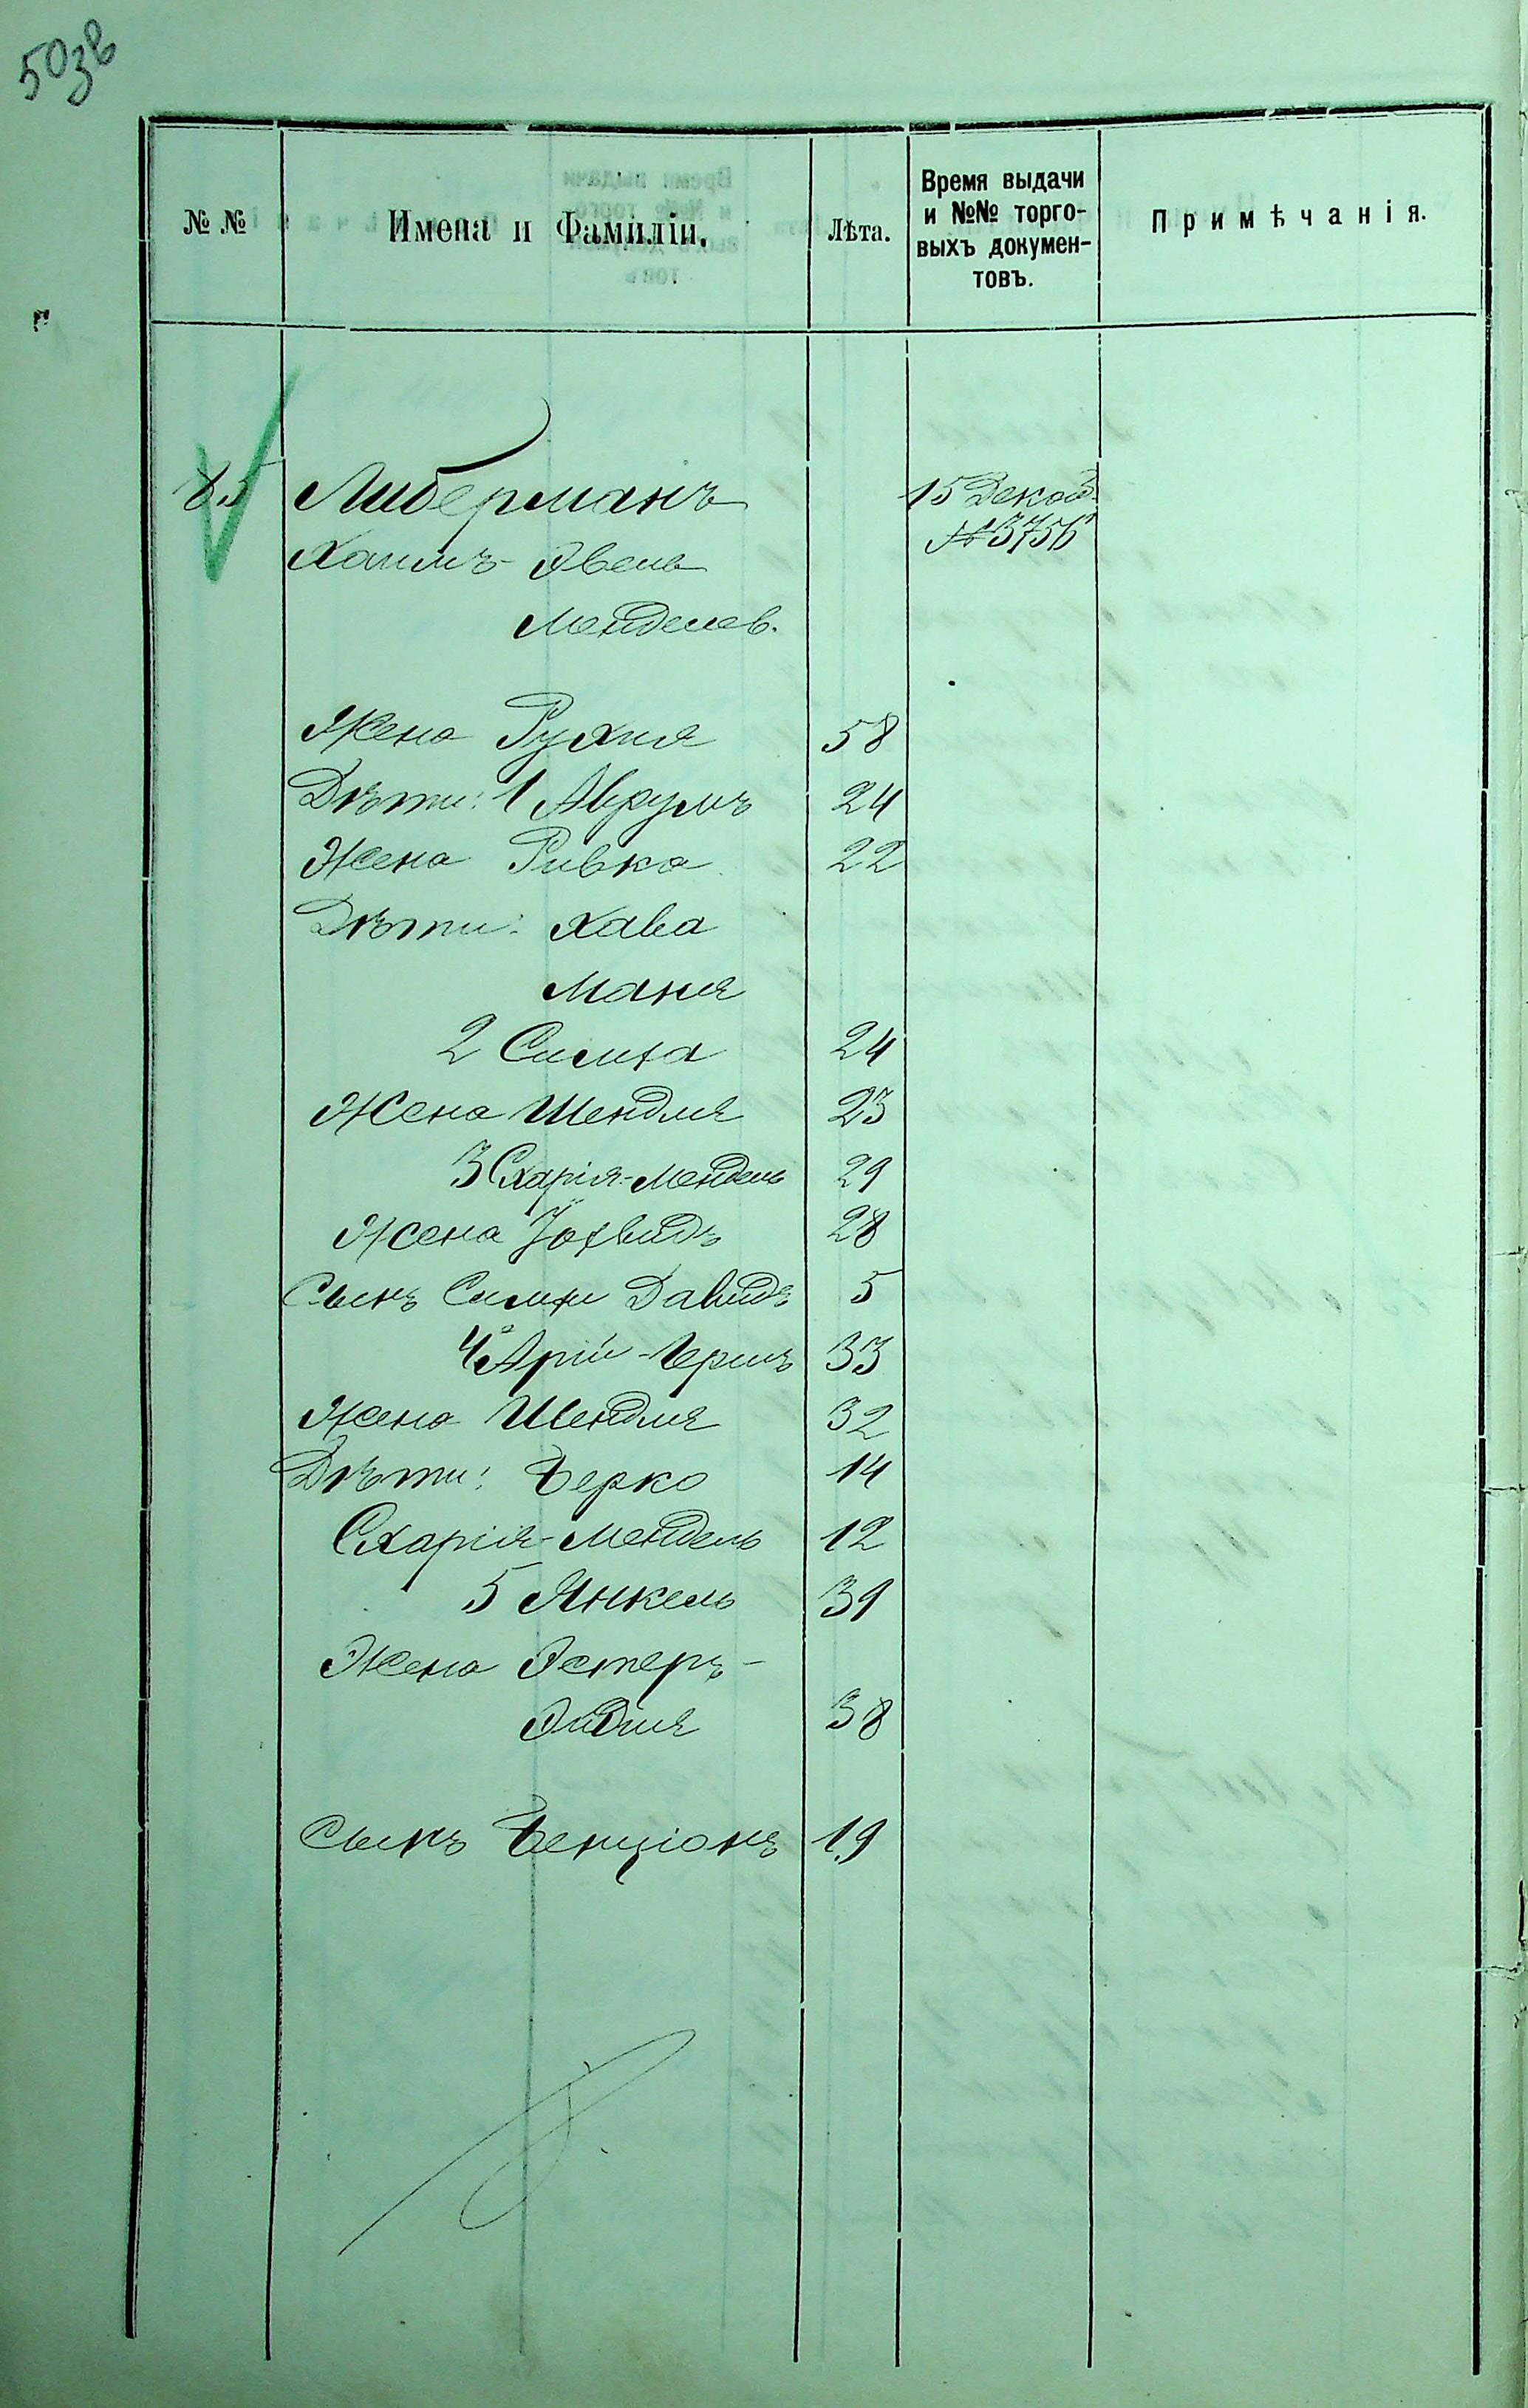 503в
№ №
Имена и Фамиліи.
Лѣта.
Время выдачи
и №№ торго-
выхъ докумен-
товъ.
Примѣчанія.
85 Либерманъ 15 Декаб.
Хаимъ-Явель № 3756
Менделев.
Жена Рухля 58
Дѣти: 1 Аврумъ 24
Жена Ривка 22
Дѣти: Хава
Маня
2 Симха 24
Жена Шендля 23
3 Схарія-Мендель 29
Жена Іохвидъ 28
Сынъ Симхи Давидъ 5
4 Арій-Беришъ 33
Жена Шендля 32
Дѣти: Берко 14
Схарія-Мендель 12
5 Янкель 39
Жена Эстеръ-
Эйдля 38
Сынъ Бенціонъ 19